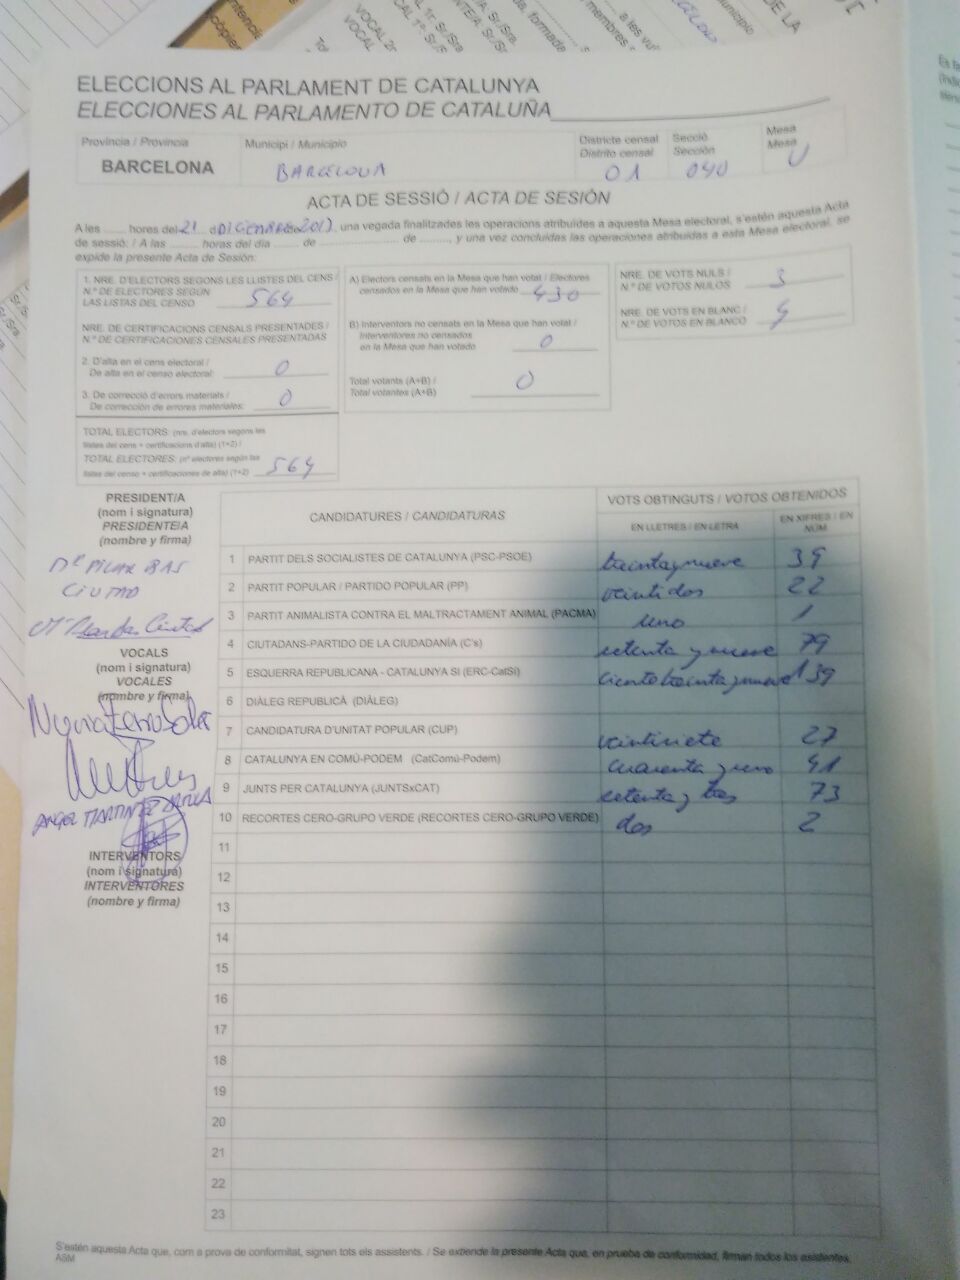 ELECCIONS AL PARLAMENT DE CATALUNYA
ELECCIONES AL PARLAMENTO DE CATALUÑA
Província / Provincia
BARCELONA
Municipi / Municipio
BARCELONA
Districte censal
Distrito censal
01
Secció
Sección
040
Mesa
Mesa
U
ACTA DE SESSIÓ / ACTA DE SESIÓN
A les ........ hores del 21 d DICIEMBRE de 2017, una vegada finalitzades les operacions atribuïdes a aquesta Mesa electoral, s'estén aquesta Acta
de sessió: / A las ......... horas del día ...... de .................... de ........., y una vez concluidas las operaciones atribuidas a esta Mesa electoral, se
expide la presente Acta de Sesión:
1. NRE. D'ELECTORS SEGONS LES LLISTES DEL CENS /
N.º DE ELECTORES SEGÚN
LAS LISTAS DEL CENSO
564
NRE. DE CERTIFICACIONS CENSALS PRESENTADES /
N.º DE CERTIFICACIONES CENSALES PRESENTADAS
2. D'alta en el cens electoral /
De alta en el censo electoral:
0
3. De correcció d'errors materials /
De corrección de errores materiales:
0
TOTAL ELECTORS: (nre. d'electors segons les
llistes del cens + certificacions d'alta) (1+2) /
TOTAL ELECTORES: (nº electores según las
listas del censo + certificaciones de alta) (1+2)
564
A) Electors censats en la Mesa que han votat / Electores
censados en la Mesa que han votado
430
B) Interventors no censats en la Mesa que han votat /
Interventores no censados
en la Mesa que han votado
0
Total votants (A+B) /
Total votantes (A+B)
0
NRE. DE VOTS NULS /
N.º DE VOTOS NULOS
3
NRE. DE VOTS EN BLANC /
N.º DE VOTOS EN BLANCO
PRESIDENT/A
(nom i signatura)
PRESIDENTE/A
(nombre y firma)
PILAR BAS
VOCALS
(nom i signatura)
VOCALES
(nombre y firma)
ANGEL MARTINEZ
INTERVENTORS
(nom i signatura)
INTERVENTORES
(nombre y firma)
CANDIDATURES / CANDIDATURAS
VOTS OBTINGUTS / VOTOS OBTENIDOS
EN LLETRES / EN LETRA
EN XIFRES / EN NÚM.
1 PARTIT DELS SOCIALISTES DE CATALUNYA (PSC-PSOE) treinta y nueve 39
2 PARTIT POPULAR / PARTIDO POPULAR (PP) veintidos 22
3 PARTIT ANIMALISTA CONTRA EL MALTRACTAMENT ANIMAL (PACMA) uno 1
4 CIUTADANS-PARTIDO DE LA CIUDADANÍA (C's) setenta y nueve 79
5 ESQUERRA REPUBLICANA - CATALUNYA SI (ERC-CatSí) ciento treinta y nueve 139
6 DIÀLEG REPUBLICÀ (DIÀLEG)
7 CANDIDATURA D'UNITAT POPULAR (CUP) veintisiete 27
8 CATALUNYA EN COMÚ-PODEM (CatComú-Podem) cuarenta y uno 41
9 JUNTS PER CATALUNYA (JUNTSxCAT) setenta y tres 73
10 RECORTES CERO-GRUPO VERDE (RECORTES CERO-GRUPO VERDE) dos 2
11
12
13
14
15
16
17
18
19
20
21
22
23
S'estén aquesta Acta que, com a prova de conformitat, signen tots els assistents. / Se extiende la presente Acta que, en prueba de conformidad, firman todos los asistentes.